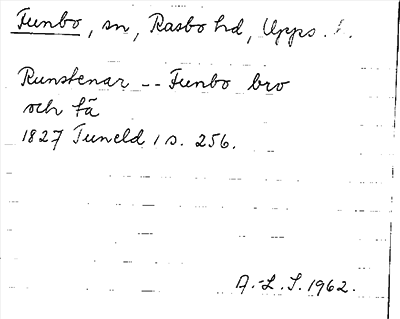 Funbo, sn, Rasbo hd, Upps. l.
Runstenar -- Funbo bro
och tä
1827 Tuneld 1 s. 256.
A.-L. S. 1962.